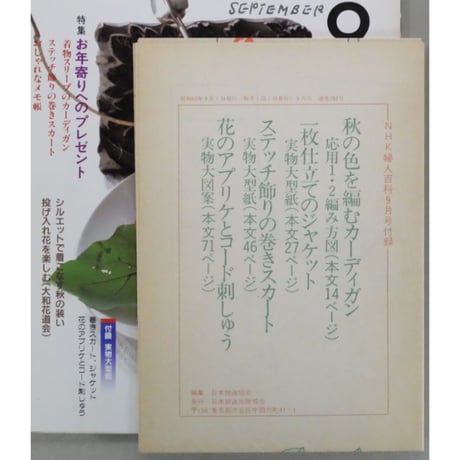 SEPTEMBER
特集 お年寄りへのプレゼント
着物スリーブのカーディガン
ステッチ飾りの巻きスカート
おしゃれなメモ帳
シルエットで着こなす秋の装い
投げ入れ花を楽しむ(大和花道会)
付録 実物大型紙
巻きスカート、ジャケット
花のアプリケとコード刺しゅう
NHK婦人百科9月号付録
秋の色を編むカーディガン
応用1・2編み方図(本文14ページ)
一枚仕立てのジャケット
実物大型紙(本文27ページ)
ステッチ飾りの巻きスカート
実物大型紙(本文46ページ)
花のアプリケとコード刺しゅう
実物大図案(本文71ページ)
編集 日本放送協会
発行 日本放送出版協会